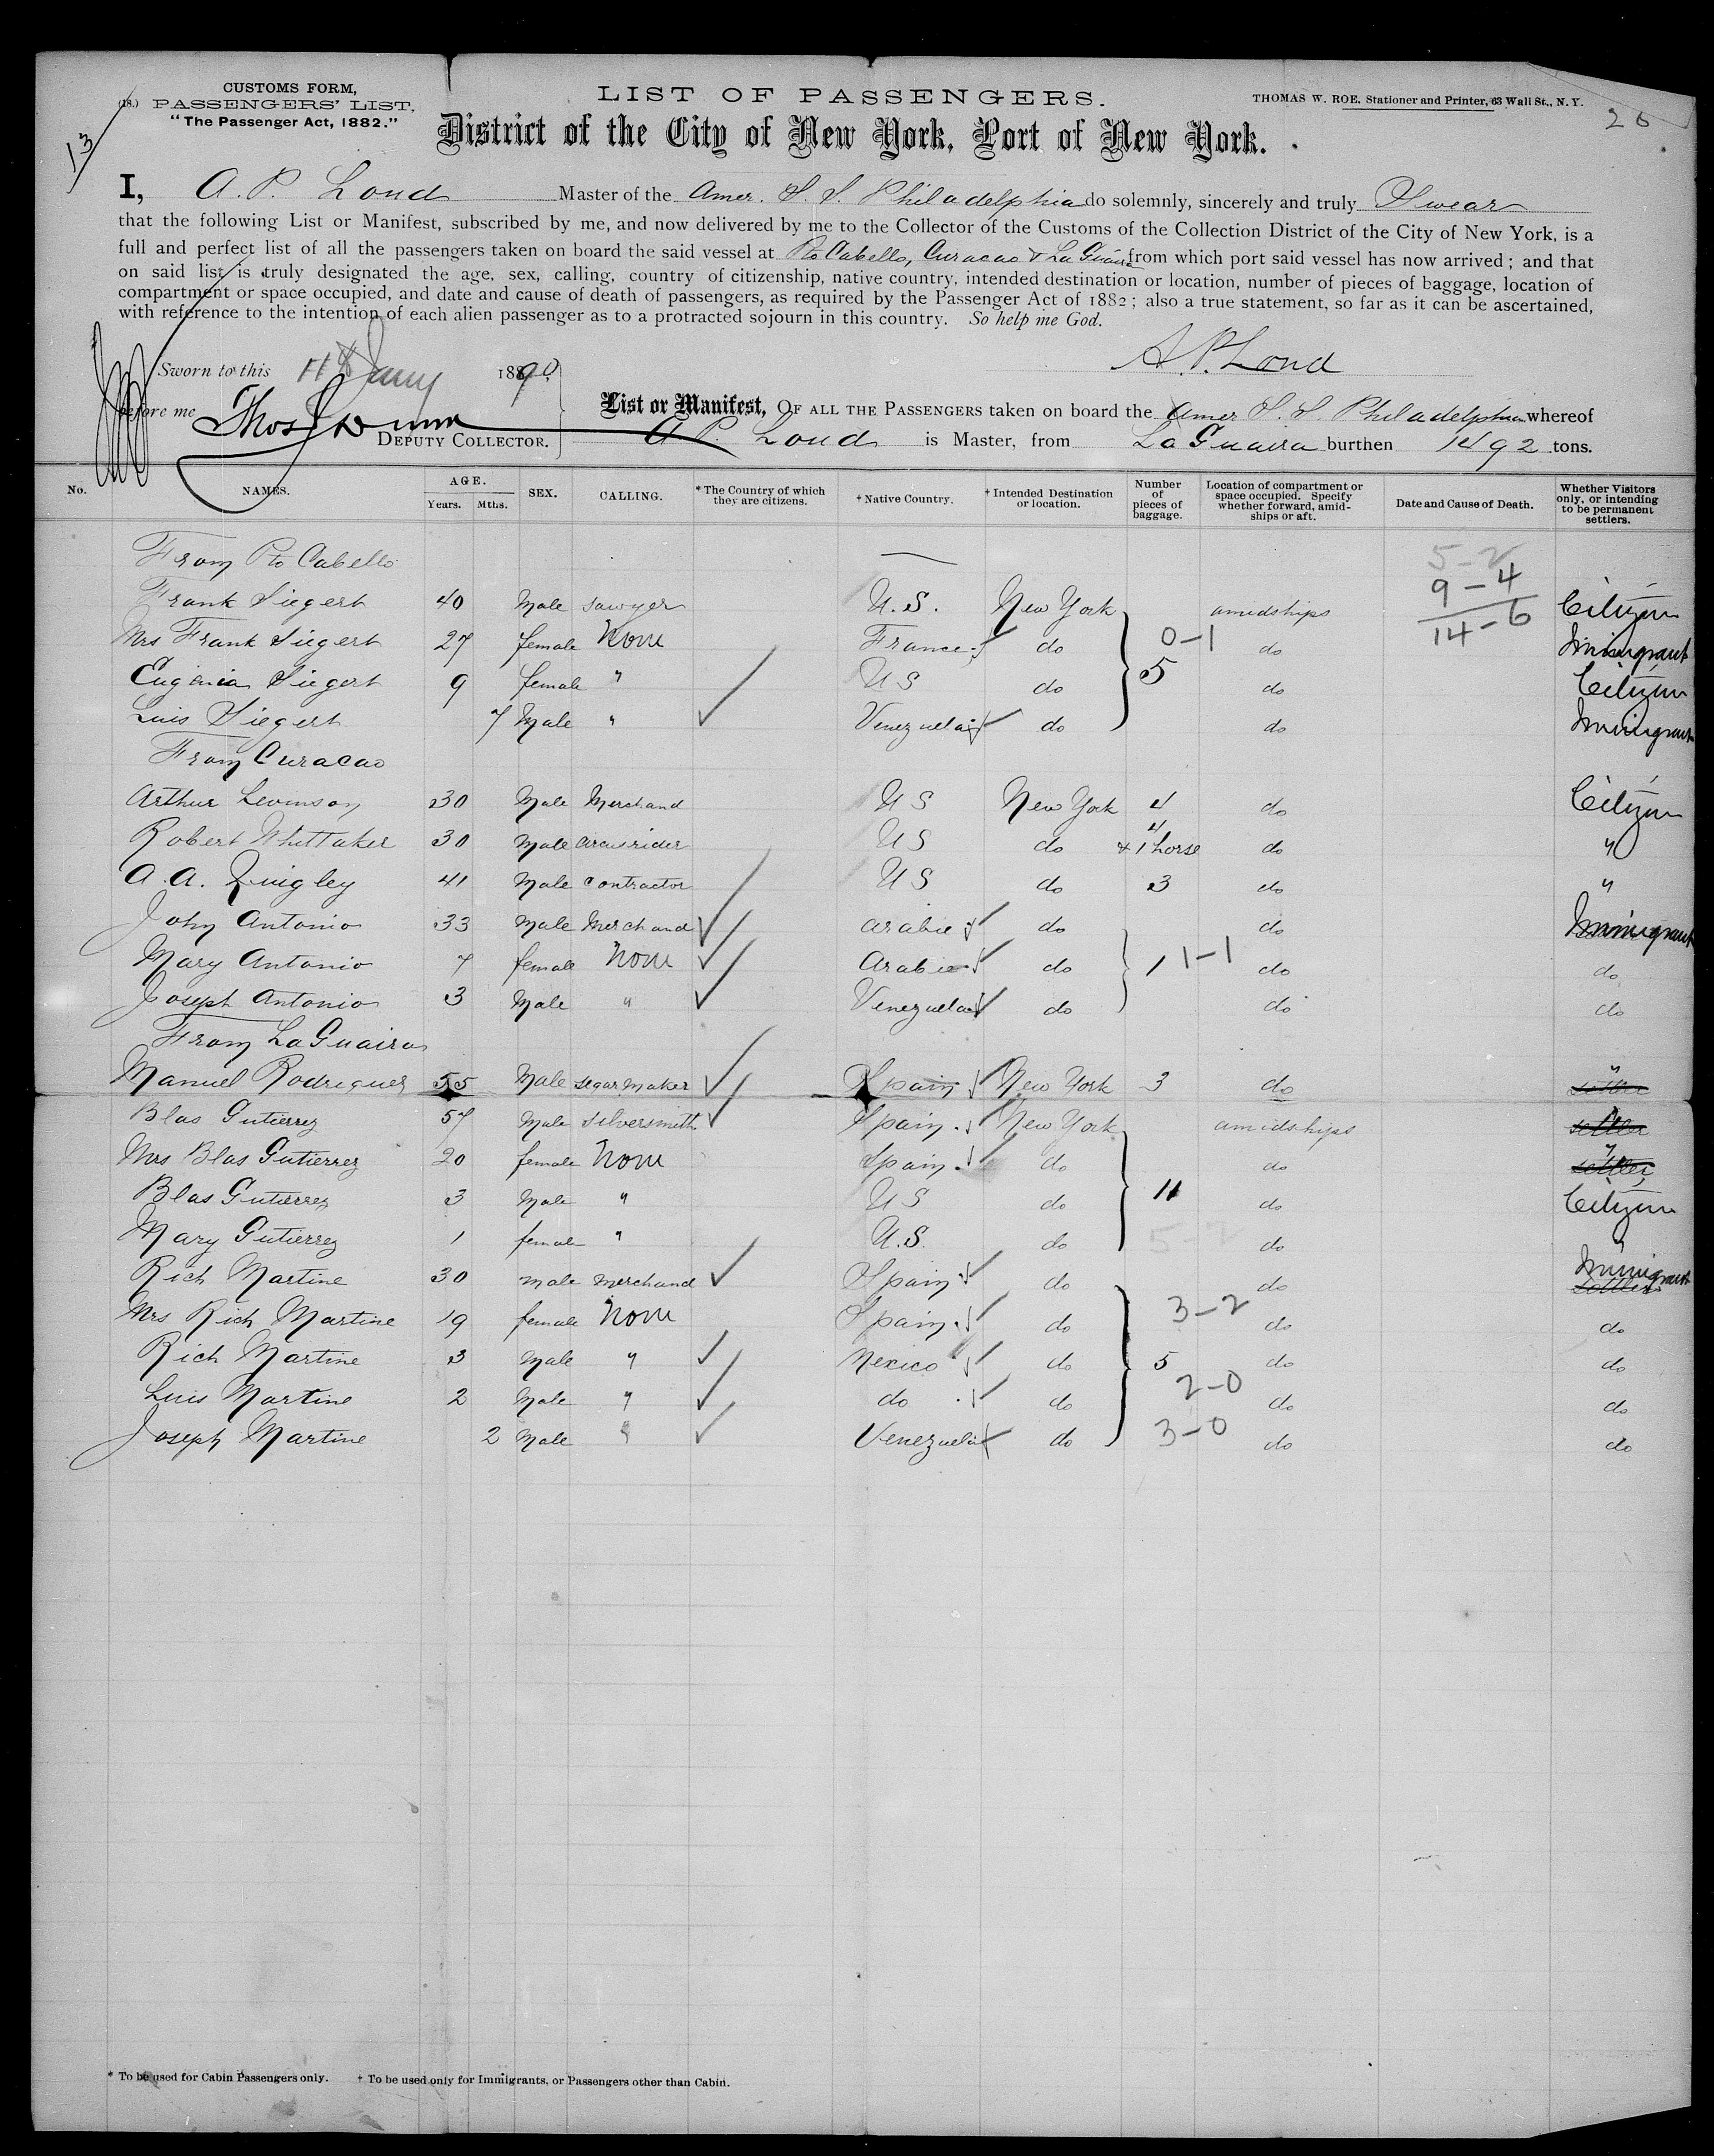 CUSTOMS FORM,
(18.) PASSENGERS' LIST.
"The Passenger Act, 1882."
LIST OF PASSENGERS.
THOMAS W. ROE, Stationer and Printer, 63 Wall St., N. Y.
13
District of the City of New York, Port of New York.
I, A. P. Loud Master of the Amer. S. S. Philadelphia do solemnly, sincerely and truly Swear
that the following List or Manifest, subscribed by me, and now delivered by me to the Collector of the Customs of the Collection District of the City of New York, is a
full and perfect list of all the passengers taken on board the said vessel at Pto Cabello, Curacao & La Guaira from which port said vessel has now arrived; and that
on said list is truly designated the age, sex, calling, country of citizenship, native country, intended destination or location, number of pieces of baggage, location of
compartment or space occupied, and date and cause of death of passengers, as required by the Passenger Act of 1882; also a true statement, so far as it can be ascertained,
with reference to the intention of each alien passenger as to a protracted sojourn in this country. So help me God.
A. P. Loud
Sworn to this Jany 1890
before me Thos Dunn
DEPUTY COLLECTOR.
List or Manifest, OF ALL THE PASSENGERS taken on board the Amer S. S. Philadelphia whereof
A P. Loud is Master, from La Guaira burthen 1492 tons.
No. NAMES. AGE. Years. Mths. SEX. CALLING. * The Country of which they are citizens. † Native Country. † Intended Destination or location. Number of pieces of baggage. Location of compartment or space occupied. Specify whether forward, amidships or aft. Date and Cause of Death. Whether Visitors only, or intending to be permanent settlers.
From Pto Cabello 5-2
Frank Siegert 40 Male sawyer U.S. New York amidships 9-4 Citizen
Mrs Frank Siegert 27 female None France do 0-1 do 14-6 Immigrant
Eugenia Siegert 9 female " U S do 5 do Citizen
Luis Siegert 7 Male " Venezuela do do Immigrant
From Curacao
Arthur Levinson 30 Male Merchand U S New York 4 do Citizen
Robert Whittaker 30 Male circusrider U S do 4 & 1 horse do "
A. A. Quigley 41 Male contractor U S do 3 do "
John Antonio 33 Male Merchand Arabie do do Immigrant
Mary Antonio 7 female None Arabie do 1 1-1 do do
Joseph Antonio 3 Male " Venezuela do do do
From La Guaira
Manuel Rodriguez 55 Male segar maker Spain New York 3 do " settler
Blas Gutierrez 57 Male silversmith Spain New York amidships " settler
Mrs Blas Gutierrez 20 female None Spain do do " settler
Blas Gutierrez 3 Male " U S do 11 do Citizen
Mary Gutierrez 1 female " U.S. do 5-2 do "
Rich Martine 30 male merchand Spain do do Immigrant settler
Mrs Rich Martine 19 female None Spain do 3-2 do do
Rich Martine 3 Male " Mexico do 5 do do
Luis Martine 2 Male " do do 2-0 do do
Joseph Martine 2 Male " Venezuela do 3-0 do do
* To be used for Cabin Passengers only. † To be used only for Immigrants, or Passengers other than Cabin.